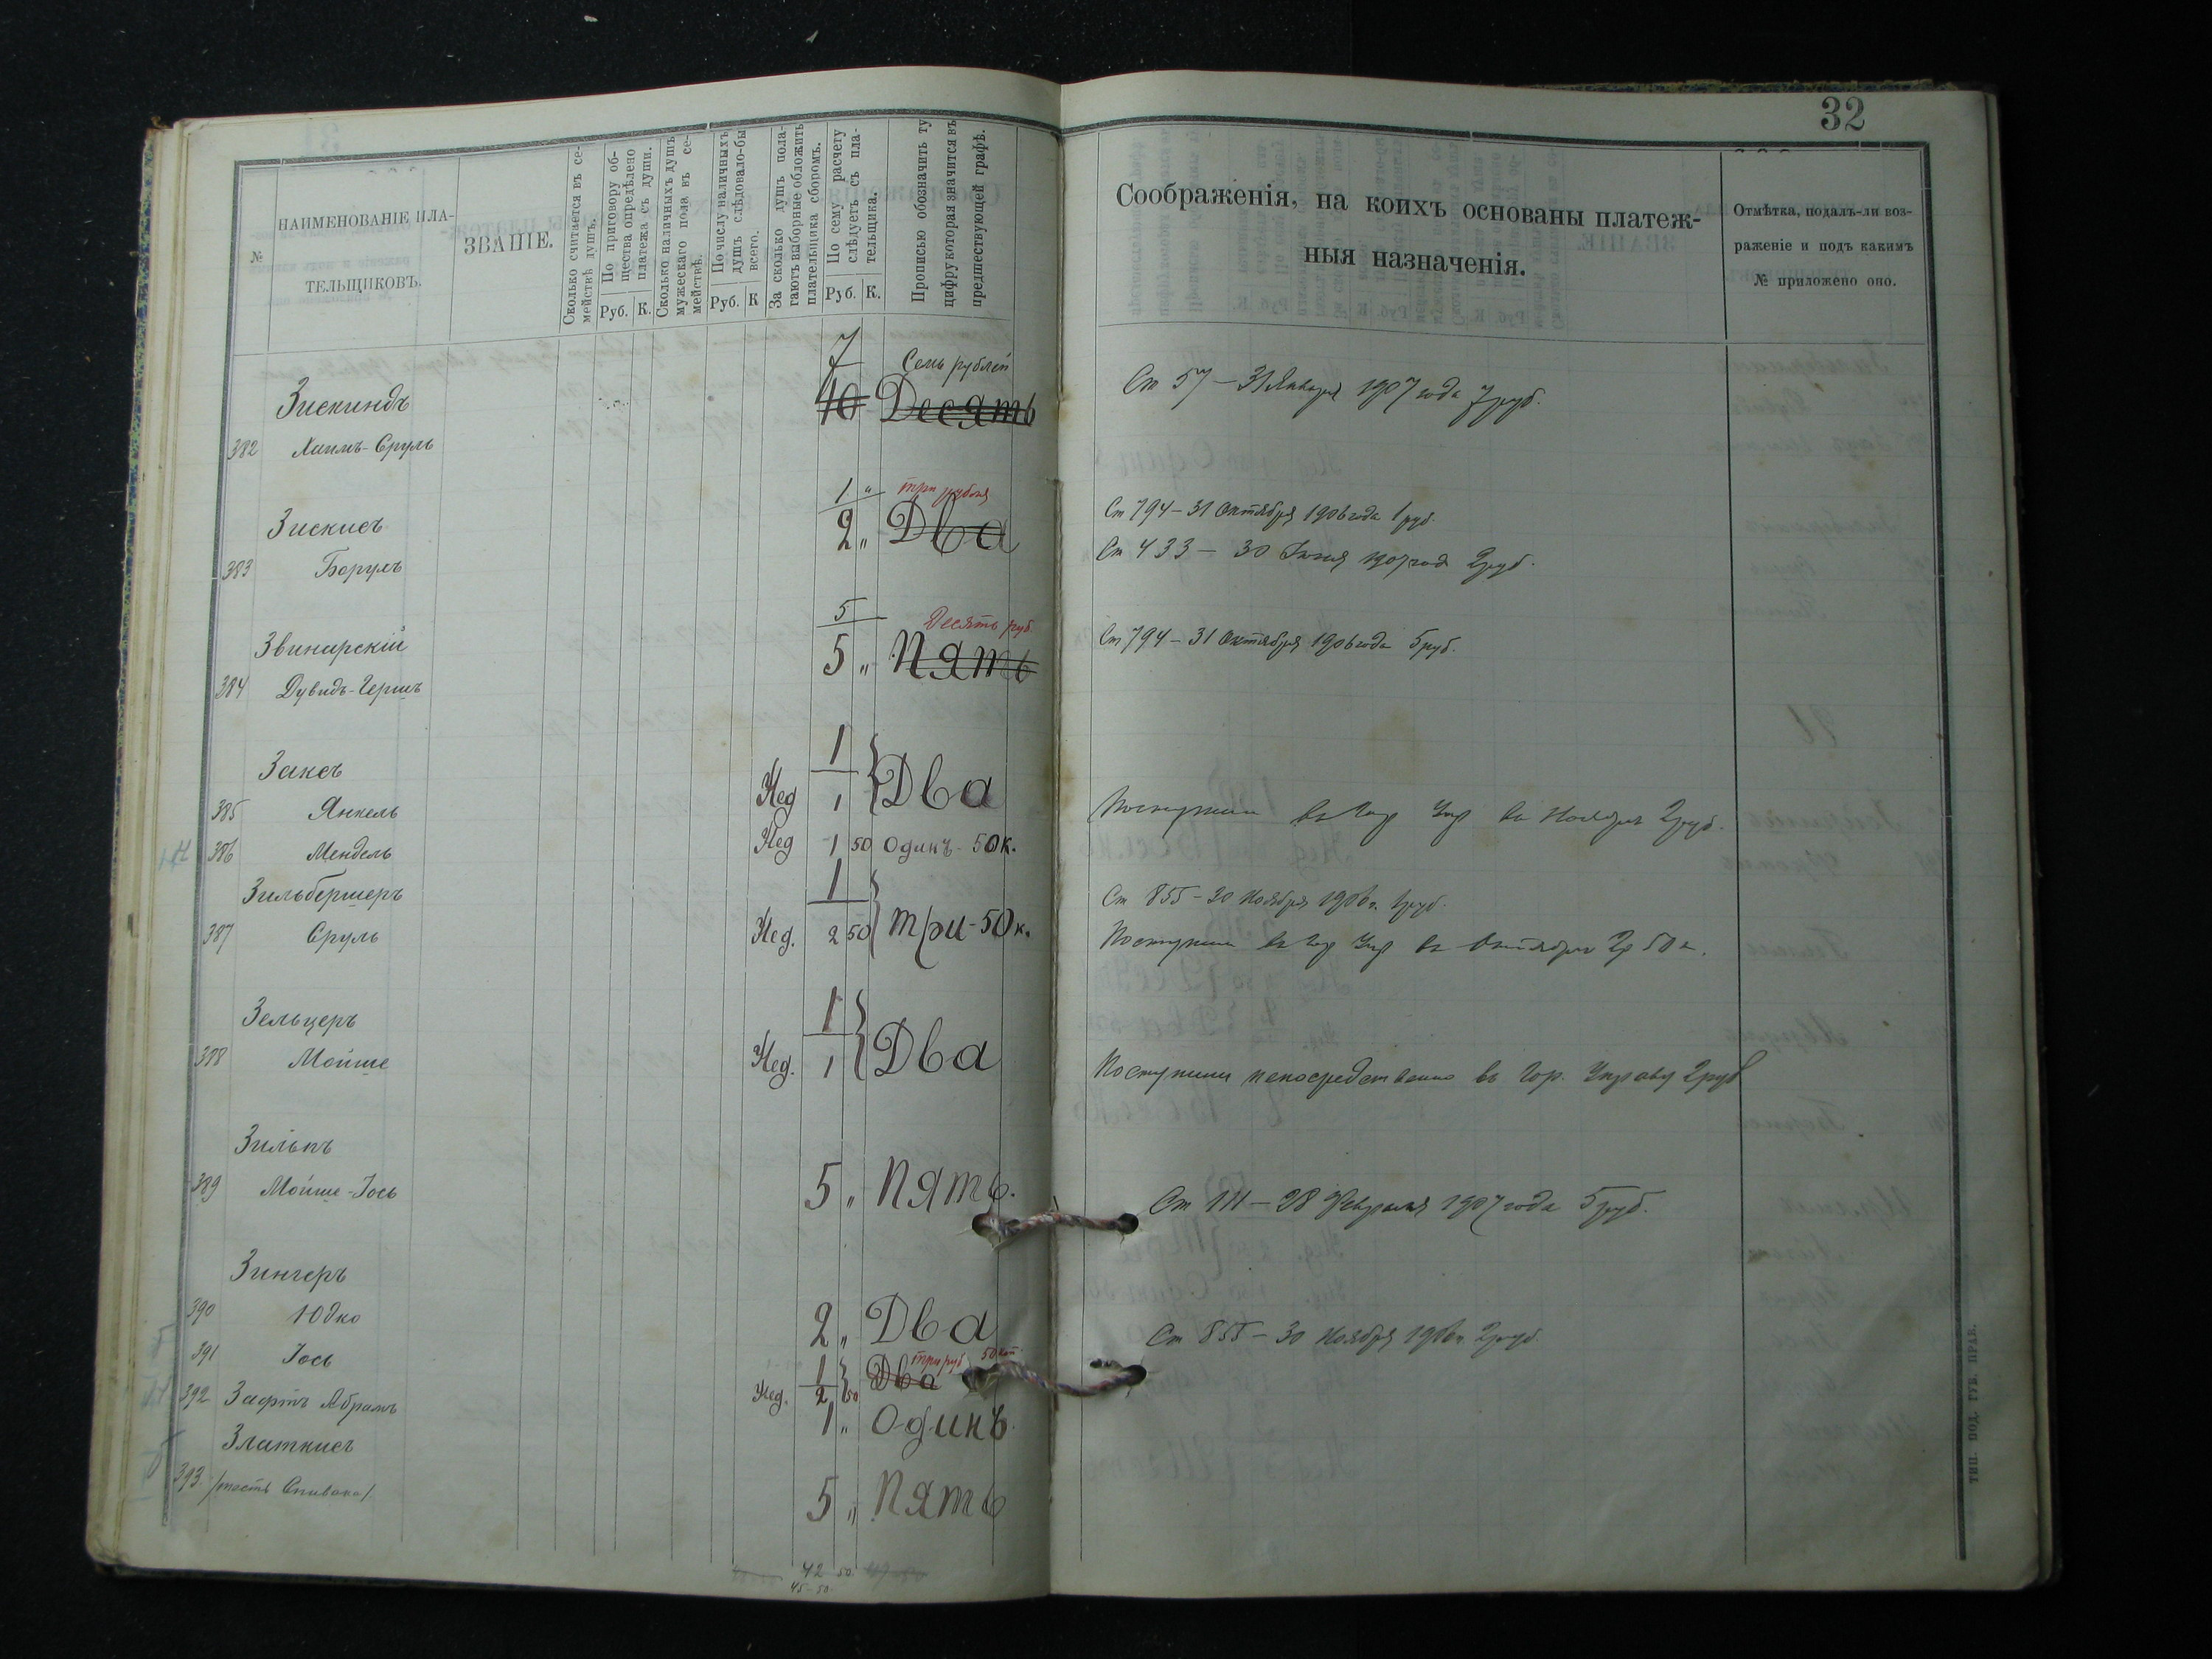 32
№
НАИМЕНОВАНІЕ ПЛА-
ТЕЛЬЩИКОВЪ.
ЗВАНІЕ.
Сколько считается въ се-
мействѣ душъ.
По приговору об-
щества опредѣлено
платежа съ души.
Руб. К.
Сколько наличныхъ душъ
мужескаго пола въ се-
мействѣ.
По числу наличныхъ
душъ слѣдовало-бы
всего.
Руб. К
За сколько душъ пола-
гаютъ выборные обложить
плательщика сборомъ.
По сему расчету
слѣдуетъ съ пла-
тельщика.
Руб. К.
Прописью обозначить ту
цифру которая значится въ
предшествующей графѣ.
Соображенія, на коихъ основаны платеж-
ныя назначенія.
Отмѣтка, подалъ-ли воз-
раженіе и подъ какимъ
№ приложено оно.
7 Семь рублей
Зискиндъ 10 Десять
Ст 57 – 31 Января 1907 года 7 руб.
382 Хаимъ-Сруль
1 " три рубля
Зискисъ 2 " Два
Ст 794 – 31 Октября 1906 года 1 руб.
383 Борулъ
Ст 433 – 30 Іюня 1907 года 2 руб.
5 Десять руб.
Звинарскій 5 " Пять
Ст 794 – 31 Октября 1906 года 5 руб.
384 Дувидъ-Гершъ
Заксъ 1
385 Янкель Нед 1 Два
Поступили въ Гор Упр въ Ноябрѣ 2 руб.
386 Мендель Нед 1 50 Одинъ - 50 к.
Зильбершеръ 1
Ст 855 – 30 Ноября 1906 г. 1 руб.
387 Сруль Нед. 2 50 Три - 50 к.
Поступили въ Гор Упр въ Октябрѣ 2 р 50 к.
Зельцеръ 1
388 Мойше Нед. 1 Два
Поступили непосредственно въ Гор. Управу 2 руб
Зильпъ
389 Мойше-Іось 5 " Пять.
Ст 111 – 28 Февраля 1907 года 5 руб.
Зингеръ
390 Юдко 2 " Два
Ст 855 – 30 Ноября 1906 г. 2 руб.
391 Іось 1 Два три руб 50 коп.
Нед. 2 50
392 Зафтъ Абрамъ 1 " Одинъ.
Златкисъ
393. /тесть Спивака/. 5 " Пять
42 50
45-50
ТИП. ПОД. ГУБ. ПРАВ.